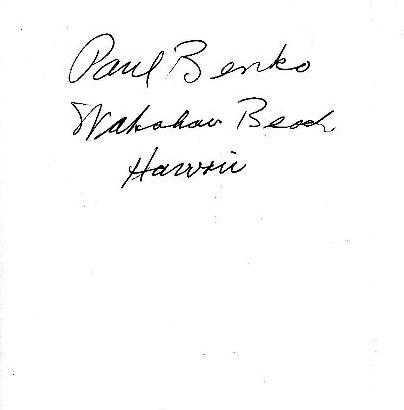 Paul Benko
Wakahau Beach
Hawaii